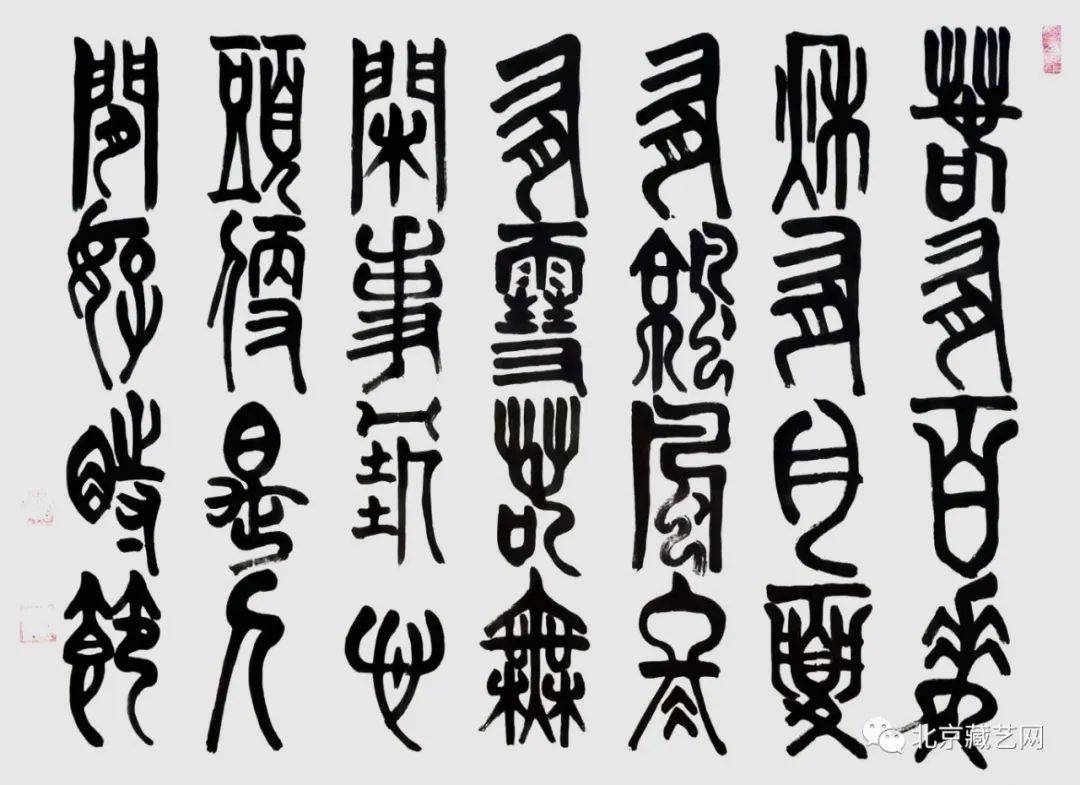 春有百華
秋有月夏
有涼風冬
有雪若無
閑事挂心
頭便是人
間好時節
北京藏艺网